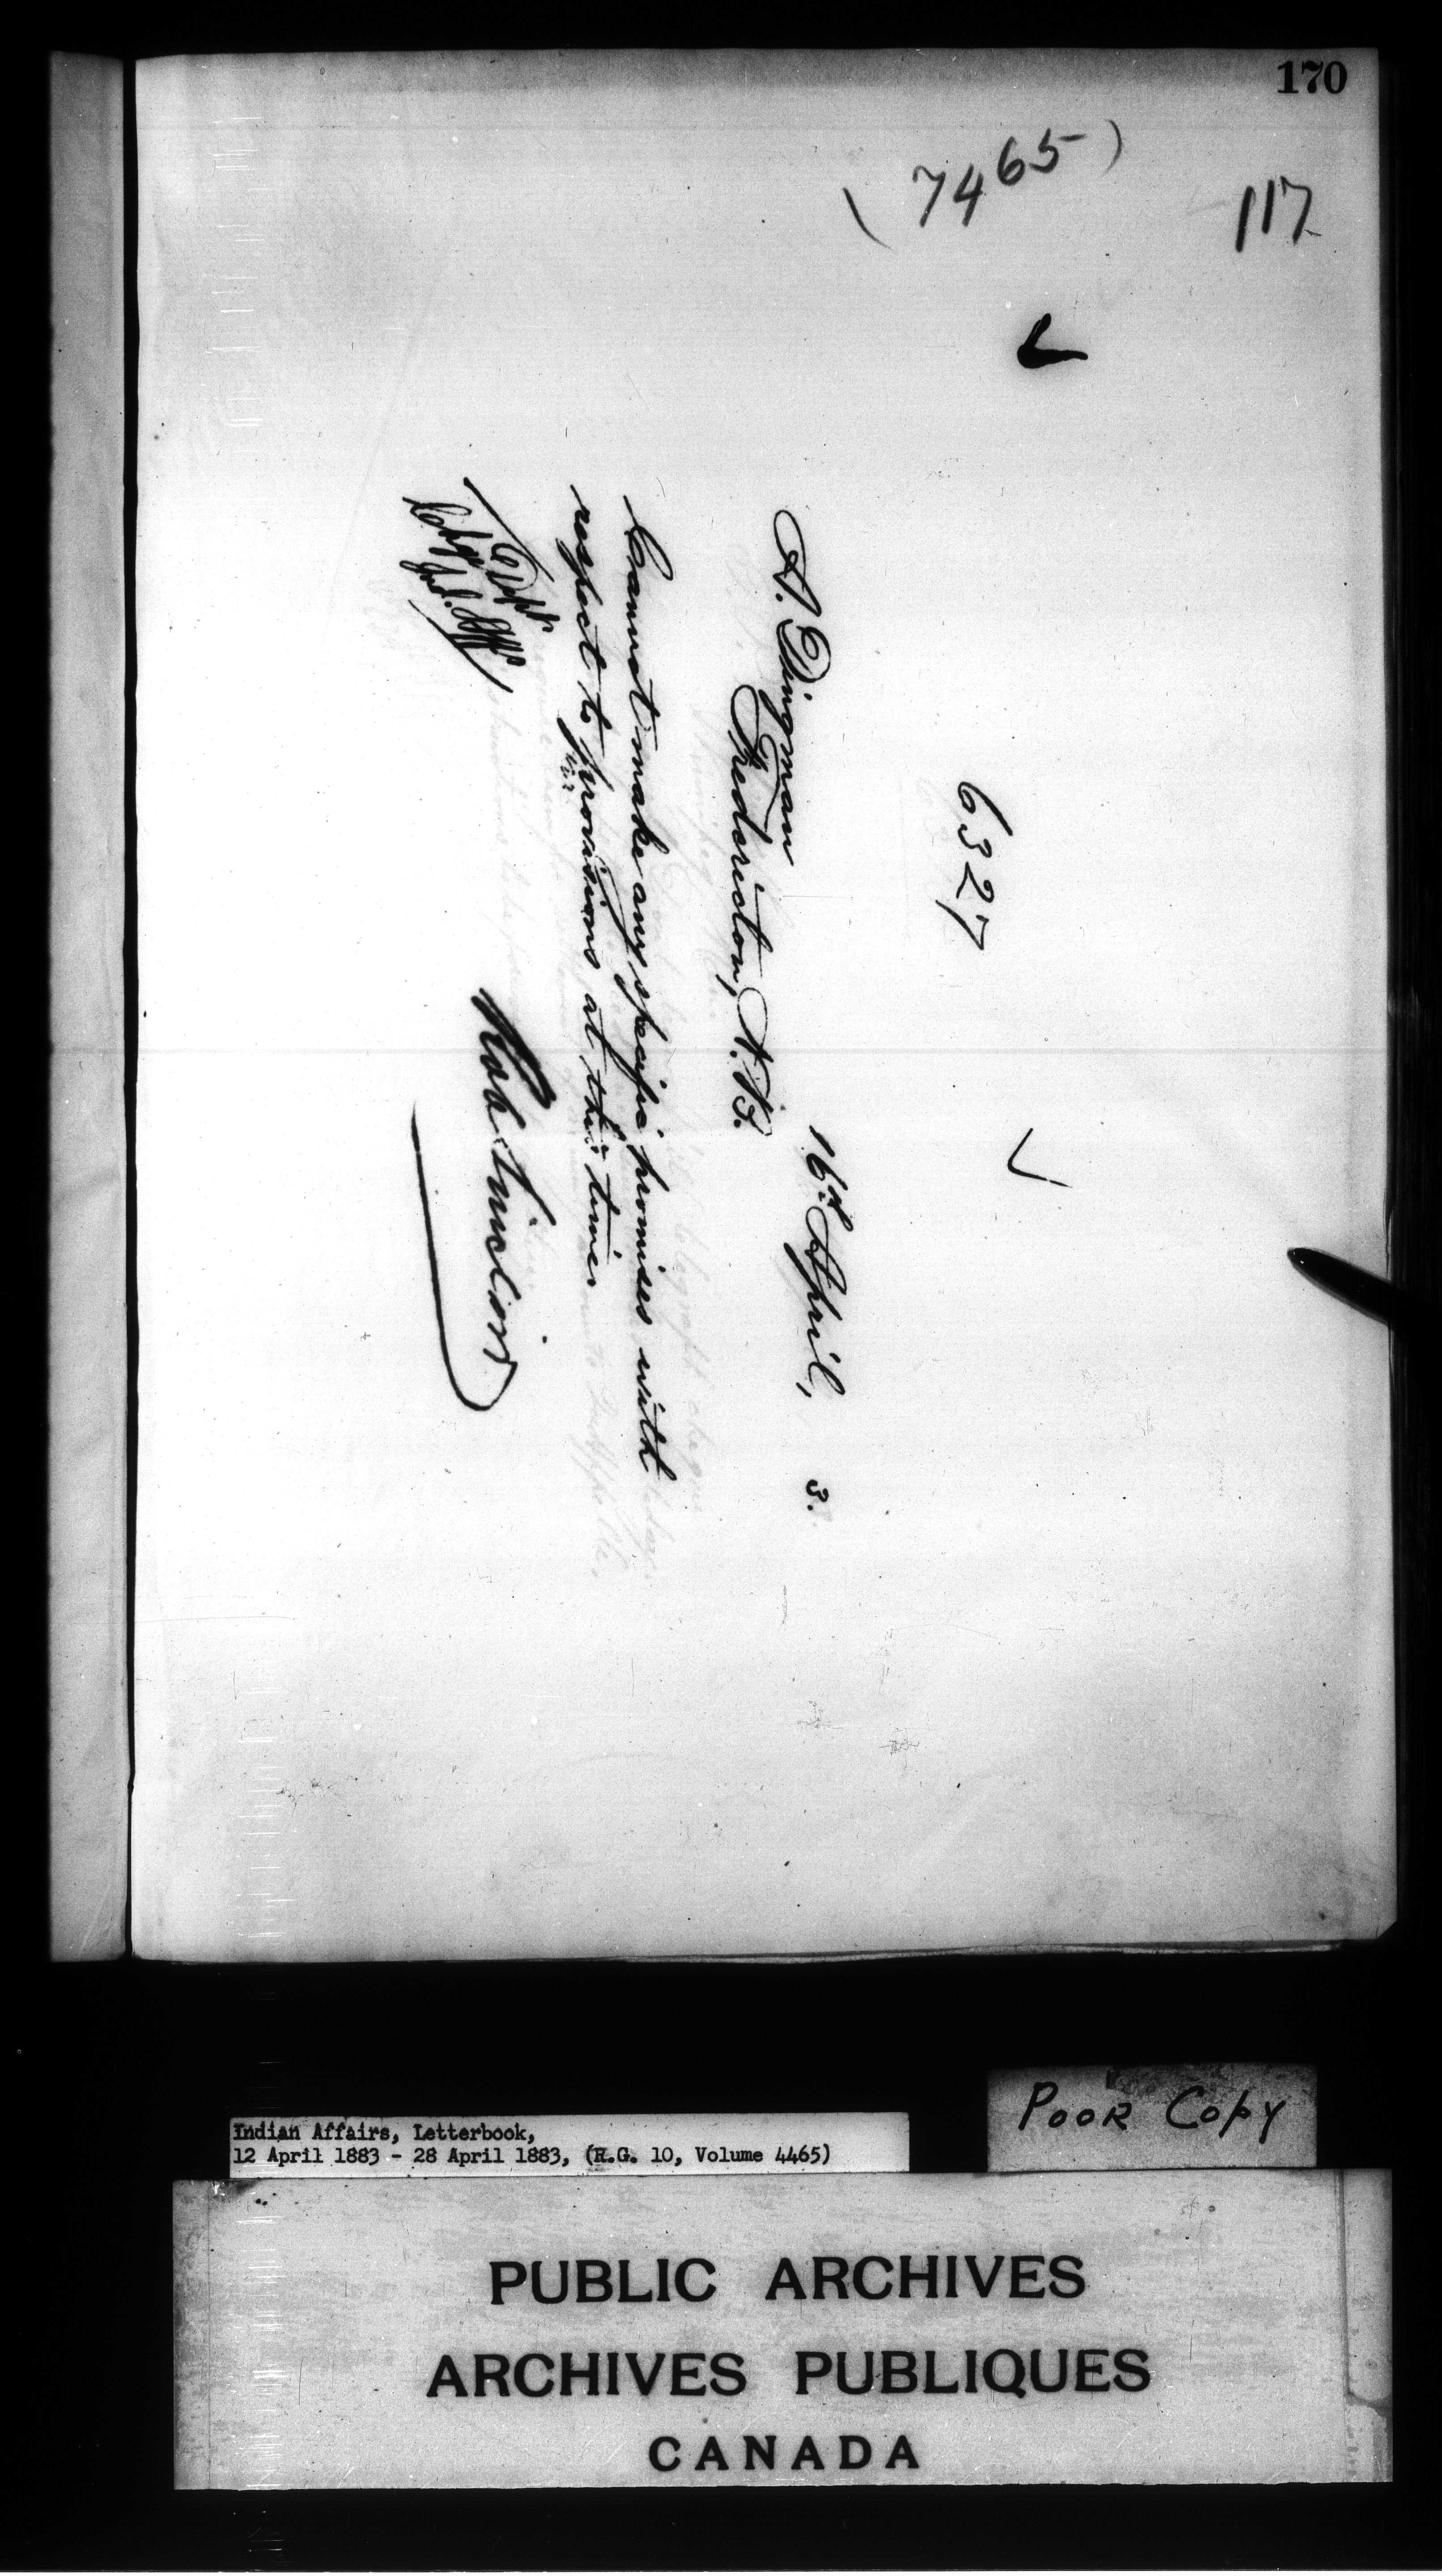 170
(7465)
117
6327
16th April, 3.
A. Dingman
Fredericton, N.B.
Cannot make any specific promises with
respect to provisions at this time.
Rob. Sinclair
Chge Dept
Ind. Aff
Poor Copy
Indian Affairs, Letterbook,
12 April 1883 - 28 April 1883, (R.G. 10, Volume 4465)
PUBLIC ARCHIVES
ARCHIVES PUBLIQUES
CANADA